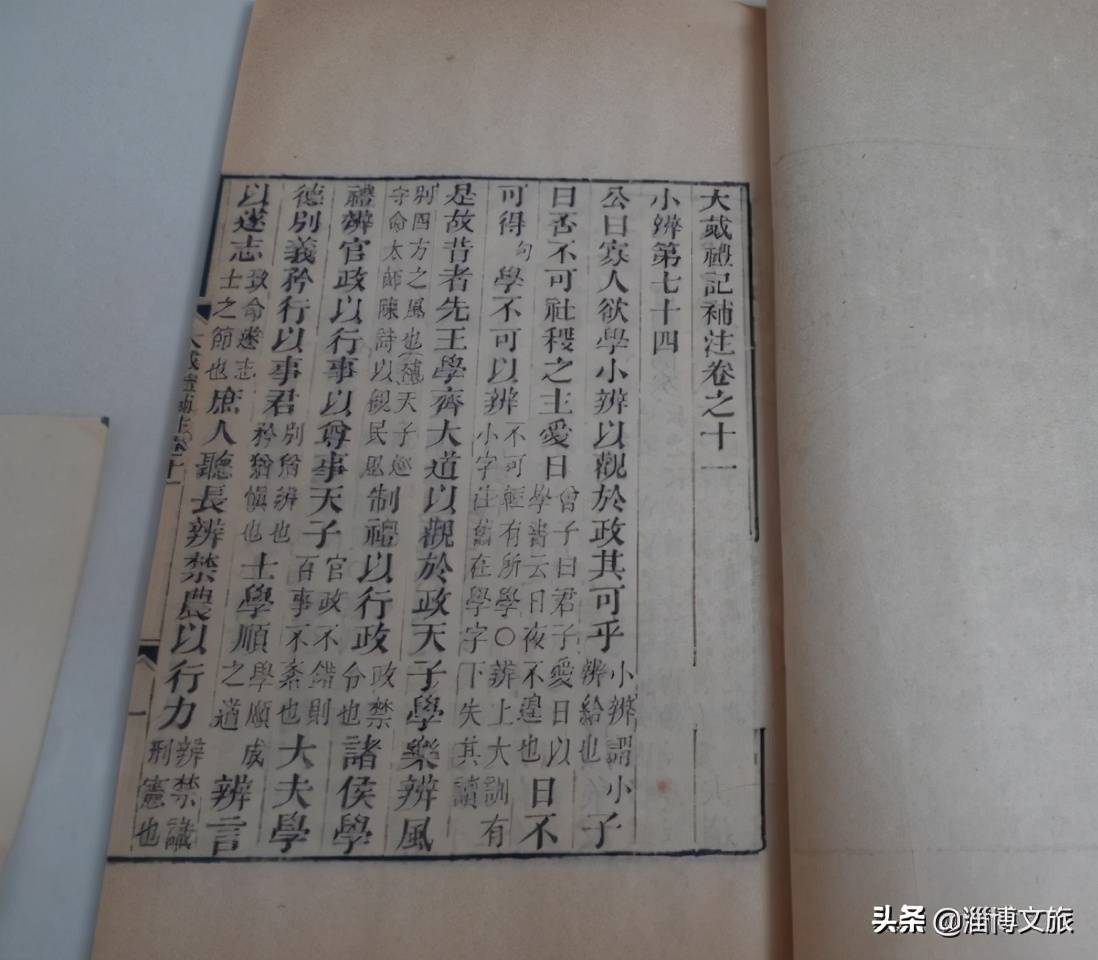 大戴禮記補注卷之十一
小辨第七十四
公曰寡人欲學小辨以觀於政其可乎小辨謂小辨給也子
曰否不可社稷之主愛日曾子曰君子愛日以學書云日夜不遑也日不
可得句學不可以辨不可輒有所學〇辨上大訓有小字注舊在學字下失其讀
是故昔者先王學齊大道以觀於政天子學樂辨風
別四方之風也補天子巡守命太師陳詩以觀民風制禮以行政政禁令也諸侯學
禮辨官政以行事以尊事天子官政不錯則百事不紊也大夫學
德別義矜行以事君別猶辨也矜猶愼也士學順學順成之道辨言
以遂志致命遂志士之節也庶人聽長辨禁農以行力辨禁識刑憲也
頭条 @淄博文旅